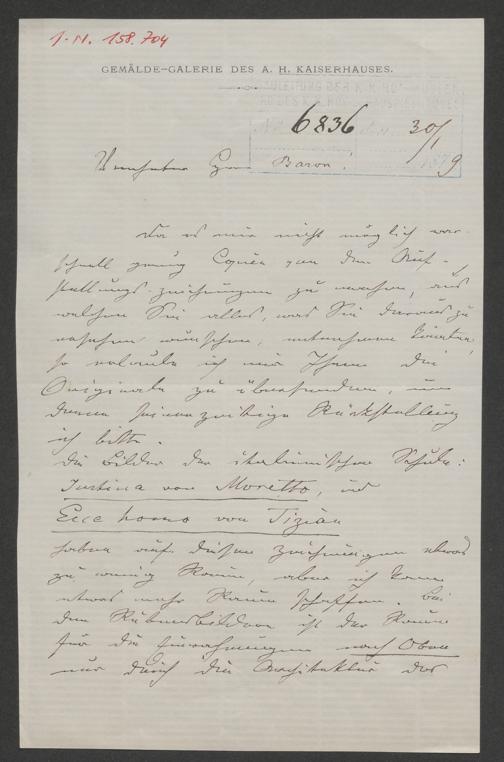 J.N. 158.704
GEMÄLDE-GALERIE DES A. H. KAISERHAUSES.
6836 30/1
9
Verehrter Herr Baron!
Da es mir nicht möglich war
schnell genug Copien von den Auf-
stellungs-zeichnungen zu machen, aus
welchen Sie alles, was Sie daraus zu
ersehen wünschen, entnehmen könnten,
so erlaube ich mir Ihnen die
Originale zu übersenden, um
deren seinerzeitige Rückstellung
ich bitte.
Die Bilder der italienischen Schule:
Justina von Moretto, und
Ecce homo von Tizian
haben auf diesen Zeichnungen etwas
zu wenig Raum, aber ich kann
etwas mehr Raum schaffen. Bei
den Rubensbildern ist der Raum
für die Einrahmungen nach Oben
nur durch die Architektur des